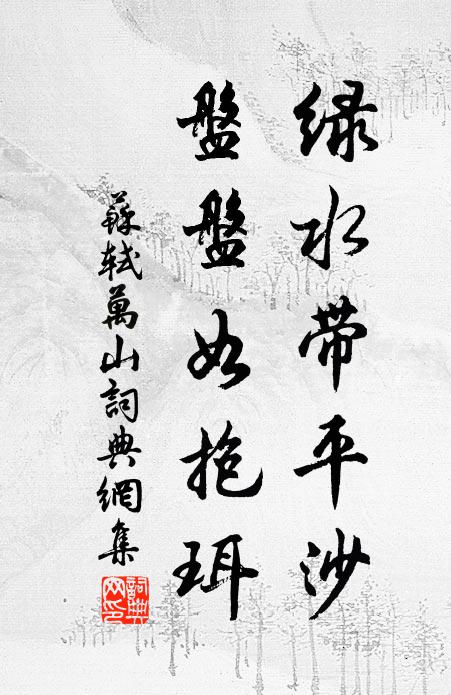 绿水带平沙
盤盤如抱珥
蘇轼萬山詞典網集
詞典網印